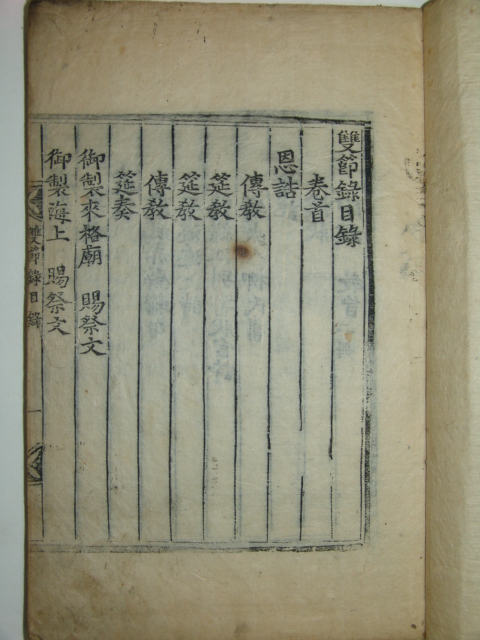 雙節錄目錄
卷首
恩誥
傳敎
筵敎
筵敎
傳敎
筵奏
御製來格廟 賜祭文
御製海上 賜祭文
雙節錄目錄
一